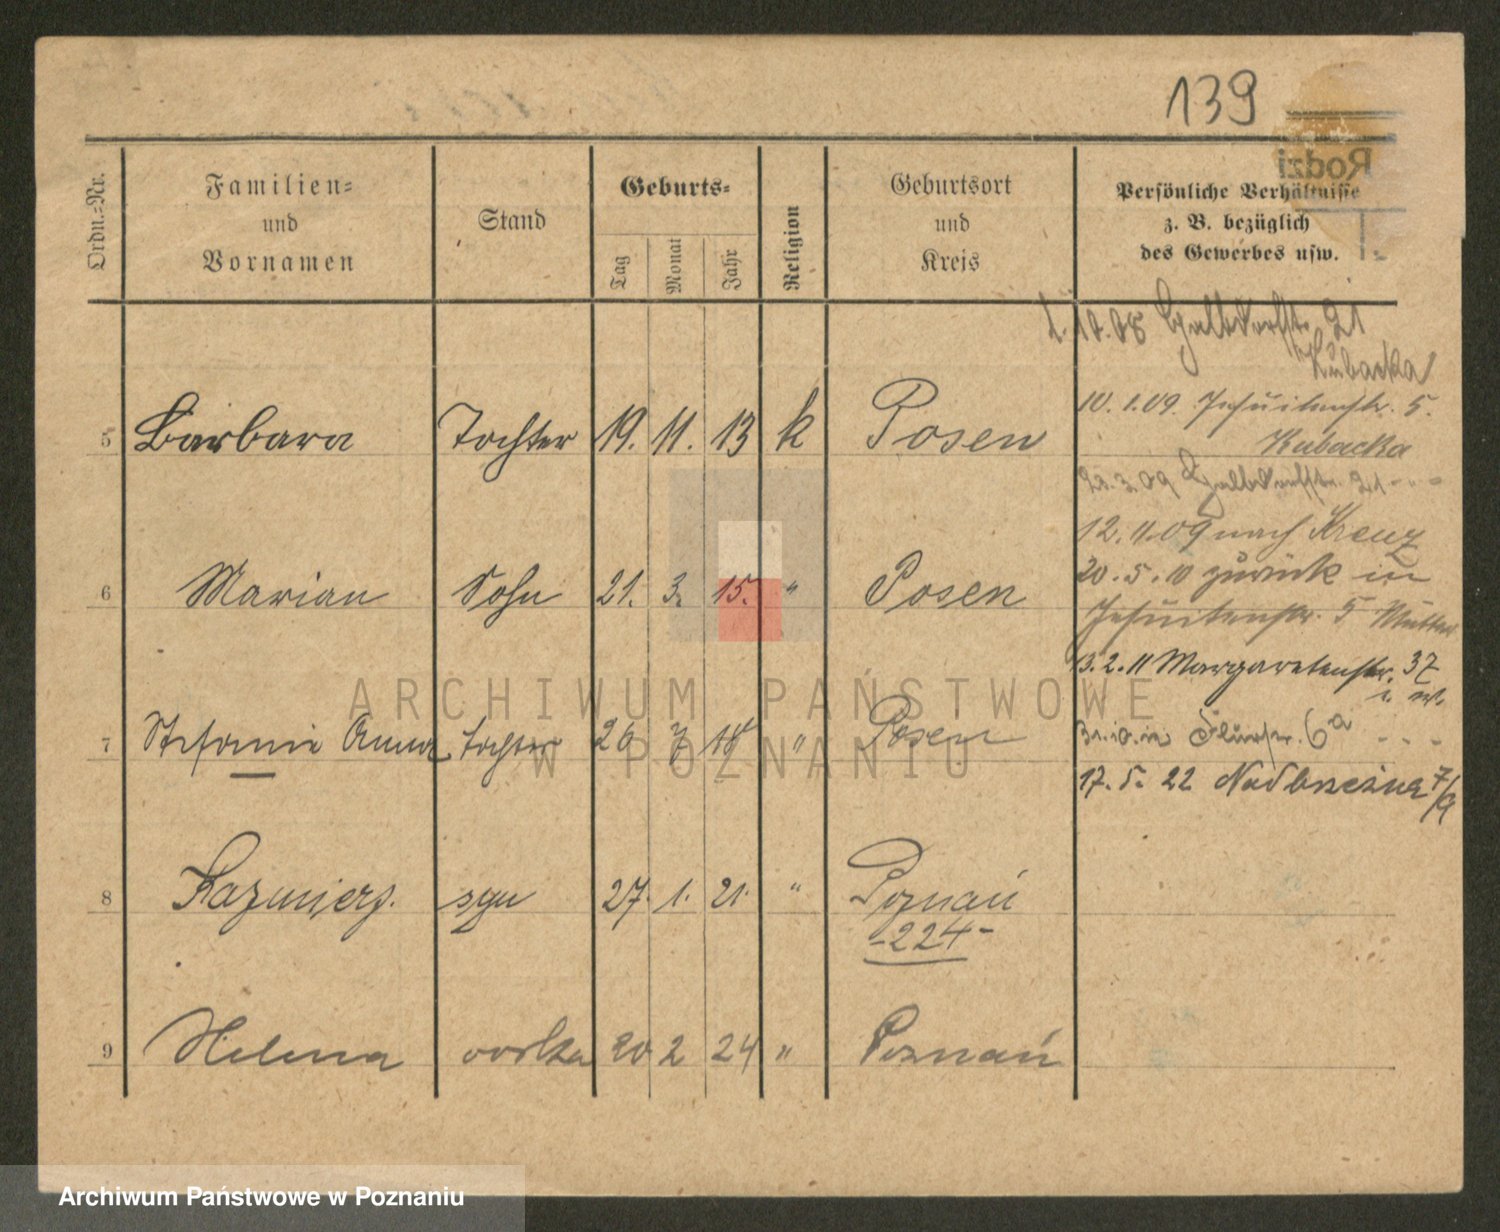 139
Rodzi
Ordn.-Nr.
Familien-
und
Vornamen
Stand
Geburts-
Tag
Monat
Jahr
Religion
Geburtsort
und
Kreis
Persönliche Verhältnisse
z. B. bezüglich
des Gewerbes usw.
1.10.08 21
Kubacka
10.1.09. Jesuitenstr. 5.
Kubacka
3.09 21 - " -
12.11.09 nach Kreuz
20.5.10 zurück in
Jesuitenstr. 5 Mutter
13.2.11 Margaretenstr. 37
i. W.
Flurstr. 6a - - -
17.5.22 Nadbrzeżna 7/9
5 Barbara Tochter 19. 11. 13 k Posen
6 Marian Sohn 21. 3. 15. " Posen
7 Stefanie Anna tochter 26 7 18 " Posen
8 Kazimierz. syn 27. 1. 21. " Poznań
-224-
9 Helena córka 20 2 24 " Poznań
ARCHIWUM PAŃSTWOWE
W POZNANIU
Archiwum Państwowe w Poznaniu